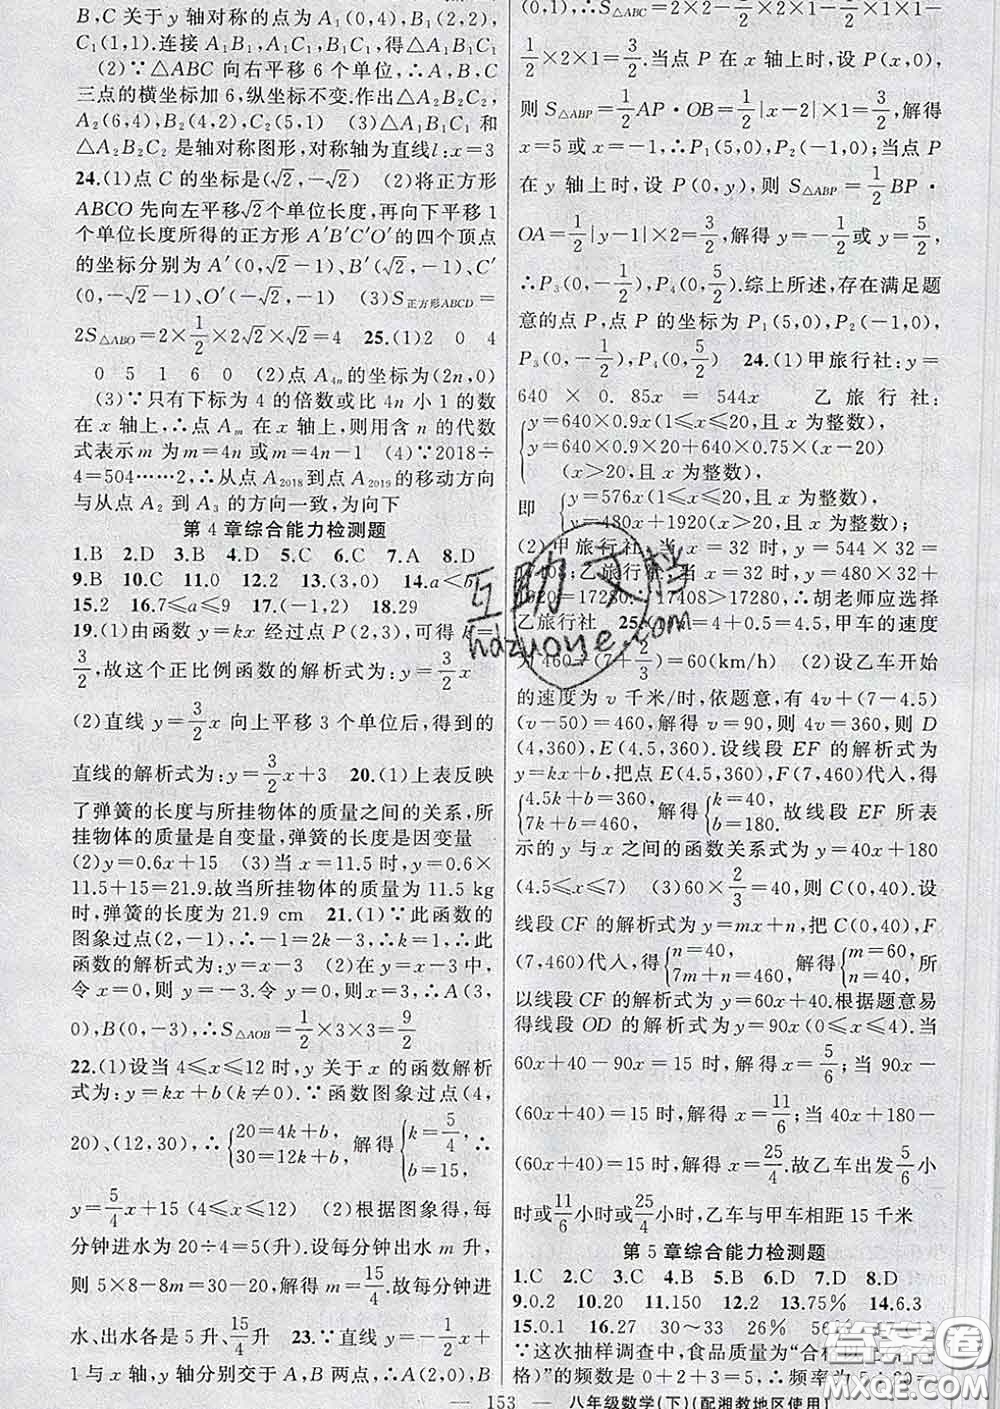 B,C 关于 y 轴对称的点为 A₁(0,4),B₁(2,2),
C₁(1,1).连接 A₁B₁,A₁C₁,B₁C₁,得△A₁B₁C₁
(2)∵△ABC 向右平移 6 个单位,∴A,B,C
三点的横坐标加 6,纵坐标不变.作出△A₂B₂C₂,
A₂(6,4),B₂(4,2),C₂(5,1) (3)△A₁B₁C₁ 和
△A₂B₂C₂ 是轴对称图形,对称轴为直线 l:x=3
24.(1)点 C 的坐标是(√2,-√2) (2)将正方形
ABCO 先向左平移√2个单位长度,再向下平移 1
个单位长度所得的正方形 A′B′C′O′的四个顶点
的坐标分别为 A′(0,√2-1),B′(√2,-1),C′
(0,-√2-1),O′(-√2,-1) (3)S正方形ABCD=
2S△ABO=2×1/2×2√2×√2=4 25.(1)2 0 4
0 5 1 6 0 (2)点 A₄ₙ的坐标为(2n,0)
(3)∵只有下标为 4 的倍数或比 4n 小 1 的数
在 x 轴上,∴点 Aₘ 在 x 轴上,则用含 n 的代数
式表示 m 为 m=4n 或 m=4n-1 (4)∵2018÷
4=504……2,∴从点 A₂₀₁₈到点 A₂₀₁₉的移动方向
与从点 A₂ 到 A₃ 的方向一致,为向下
第 4 章综合能力检测题
1.B 2.D 3.B 4.D 5.C 6.C 7.A 8.D
9.B 10.C 11.0 12.2 13.(3,0) 14.a<b
15.2 16.7≤a≤9 17.(-1,2) 18.29
19.(1)由函数 y=kx 经过点 P(2,3),可得 k=
3/2,故这个正比例函数的解析式为:y=3/2x
(2)直线 y=3/2x 向上平移 3 个单位后,得到的
直线的解析式为:y=3/2x+3 20.(1)上表反映
了弹簧的长度与所挂物体的质量之间的关系,所
挂物体的质量是自变量,弹簧的长度是因变量
(2)y=0.6x+15 (3)当 x=11.5 时,y=0.6×
11.5+15=21.9.故当所挂物体的质量为 11.5 kg
时,弹簧的长度为 21.9 cm 21.(1)∵此函数的
图象过点(2,-1),∴-1=2k-3,∴k=1,∴此
函数的解析式为:y=x-3 (2)在 y=x-3 中,
令 x=0,则 y=-3.令 y=0,则 x=3,∴A(3,
0),B(0,-3),∴S△AOB=1/2×3×3=9/2
22.(1)设当 4≤x≤12 时,y 关于 x 的函数解析
式为:y=kx+b(k≠0).∵函数图象过点(4,
20)、(12,30),∴{20=4k+b, 30=12k+b, 解得{k=5/4, b=15, ∴
y=5/4x+15(4≤x≤12) (2)根据图象得,每
分钟进水为 20÷4=5(升).设每分钟出水 m 升,
则 5×8-8m=30-20,解得 m=15/4.故每分钟进
水、出水各是 5 升、15/4升 23.∵直线 y=-1/2x+
1 与 x 轴,y 轴分别交于 A,B 两点,∴A(2,0),B
(0,1),S△ABC=2×2-1/2×2×1-1/2×1×1-
1/2×2×1=3/2.当点 P 在 x 轴上时,设 P(x,0),
则 S△ABP=1/2AP·OB=1/2|x-2|×1=3/2,解得
x=5 或 x=-1,∴P₁(5,0),P₂(-1,0);当点 P
在 y 轴上时,设 P(0,y),则 S△ABP=1/2BP·
OA=1/2|y-1|×2=3/2,解得 y=-1/2或 y=5/2,
∴P₃(0,-1/2),P₄(0,5/2).综上所述,存在满足题
意的点 P,点 P 的坐标为 P₁(5,0),P₂(-1,0),
P₃(0,-1/2),P₄(0,5/2) 24.(1)甲旅行社:y=
640 × 0. 85x = 544x 乙旅行社:
{y=640×0.9x(1≤x≤20,且 x 为整数),
y=640×0.9×20+640×0.75×(x-20)
(x>20,且 x 为整数),
即{y=576x(1≤x≤20,且 x 为整数),
y=480x+1920(x>20,且 x 为整数)
(2)甲旅行社,当 x=32 时,y=544×32=
17408;乙旅行社,当 x=32 时,y=480×32+
1920=17280,∵17408>17280,∴胡老师应选择
乙旅行社 25.(1)m=4+0.5=4.5,甲车的速度
为 460÷(7+2/3)=60(km/h) (2)设乙车开始
的速度为 v 千米/时,依题意,有 4v+(7-4.5)
(v-50)=460,解得 v=90,则 4v=360,则 D
(4,360),E(4.5,360).设线段 EF 的解析式为
y=kx+b,把点 E(4.5,360),F(7,460)代入,得
{4.5k+b=360, 7k+b=460, 解得{k=40, b=180. 故线段 EF 所表
示的 y 与 x 之间的函数关系式为 y=40x+180
(4.5≤x≤7) (3)60×2/3=40,则 C(0,40).设
线段 CF 的解析式为 y=mx+n,把 C(0,40),F
(7,460)代入,得{n=40, 7m+n=460, 解得{m=60, n=40, 所
以线段 CF 的解析式为 y=60x+40.根据题意易
得线段 OD 的解析式为 y=90x(0≤x≤4).当
60x+40-90x=15 时,解得 x=5/6;当 90x-
(60x+40)=15 时,解得 x=11/6;当 40x+180-
(60x+40)=15 时,解得 x=25/4.故乙车出发5/6小
时或11/6小时或25/4小时,乙车与甲车相距 15 千米
第 5 章综合能力检测题
1.C 2.C 3.C 4.B 5.B 6.D 7.D 8.D
9.0.2 10.20 11.150 12.2 13.75% 14.6.3
15.0.1 16.27 30~33 26% 56%
∵这次抽样调查中,食品质量为“合格以上
格)的频数是 0+2+3=5,∴频率为 5÷20=
— 153 — 八年级数学(下)(配湘教地区使用)
互助文档
hdzuoye.com
答案圈